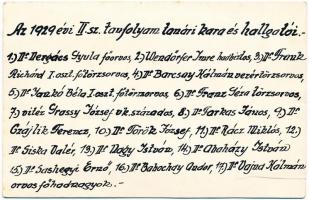 Az 1929 évi II. sz. tanfolyam tanári kara és hallgatói.-
1.) Dr Dergács Gyula főorvos, 2.) Wendörfer Imre hadbidos, 3.) Dr Frank
Richárd I. oszt. főtörzsorvos, 4.) Dr Barcsay Kálmán vezértörzsorvos,
5.) Dr Jankó Béla I. oszt. főtörzsorvos, 6.) Dr Franz Géza törzsorvos,
7.) vitéz Grassy József vk. százados, 8.) Dr Farkas János, 9.) Dr
Gzáflik Ferencz, 10.) Dr Török József, 11.) Dr Rácz Miklós, 12.)
Dr Siska Valér, 13.) Dr Nagy István, 14.) Dr Abaházy István
15.) Dr Sashegyi Ernő, 16.) Dr Babochay Andor, 17.) Dr Vajna Kálmán
orvos főhadnagyok.-